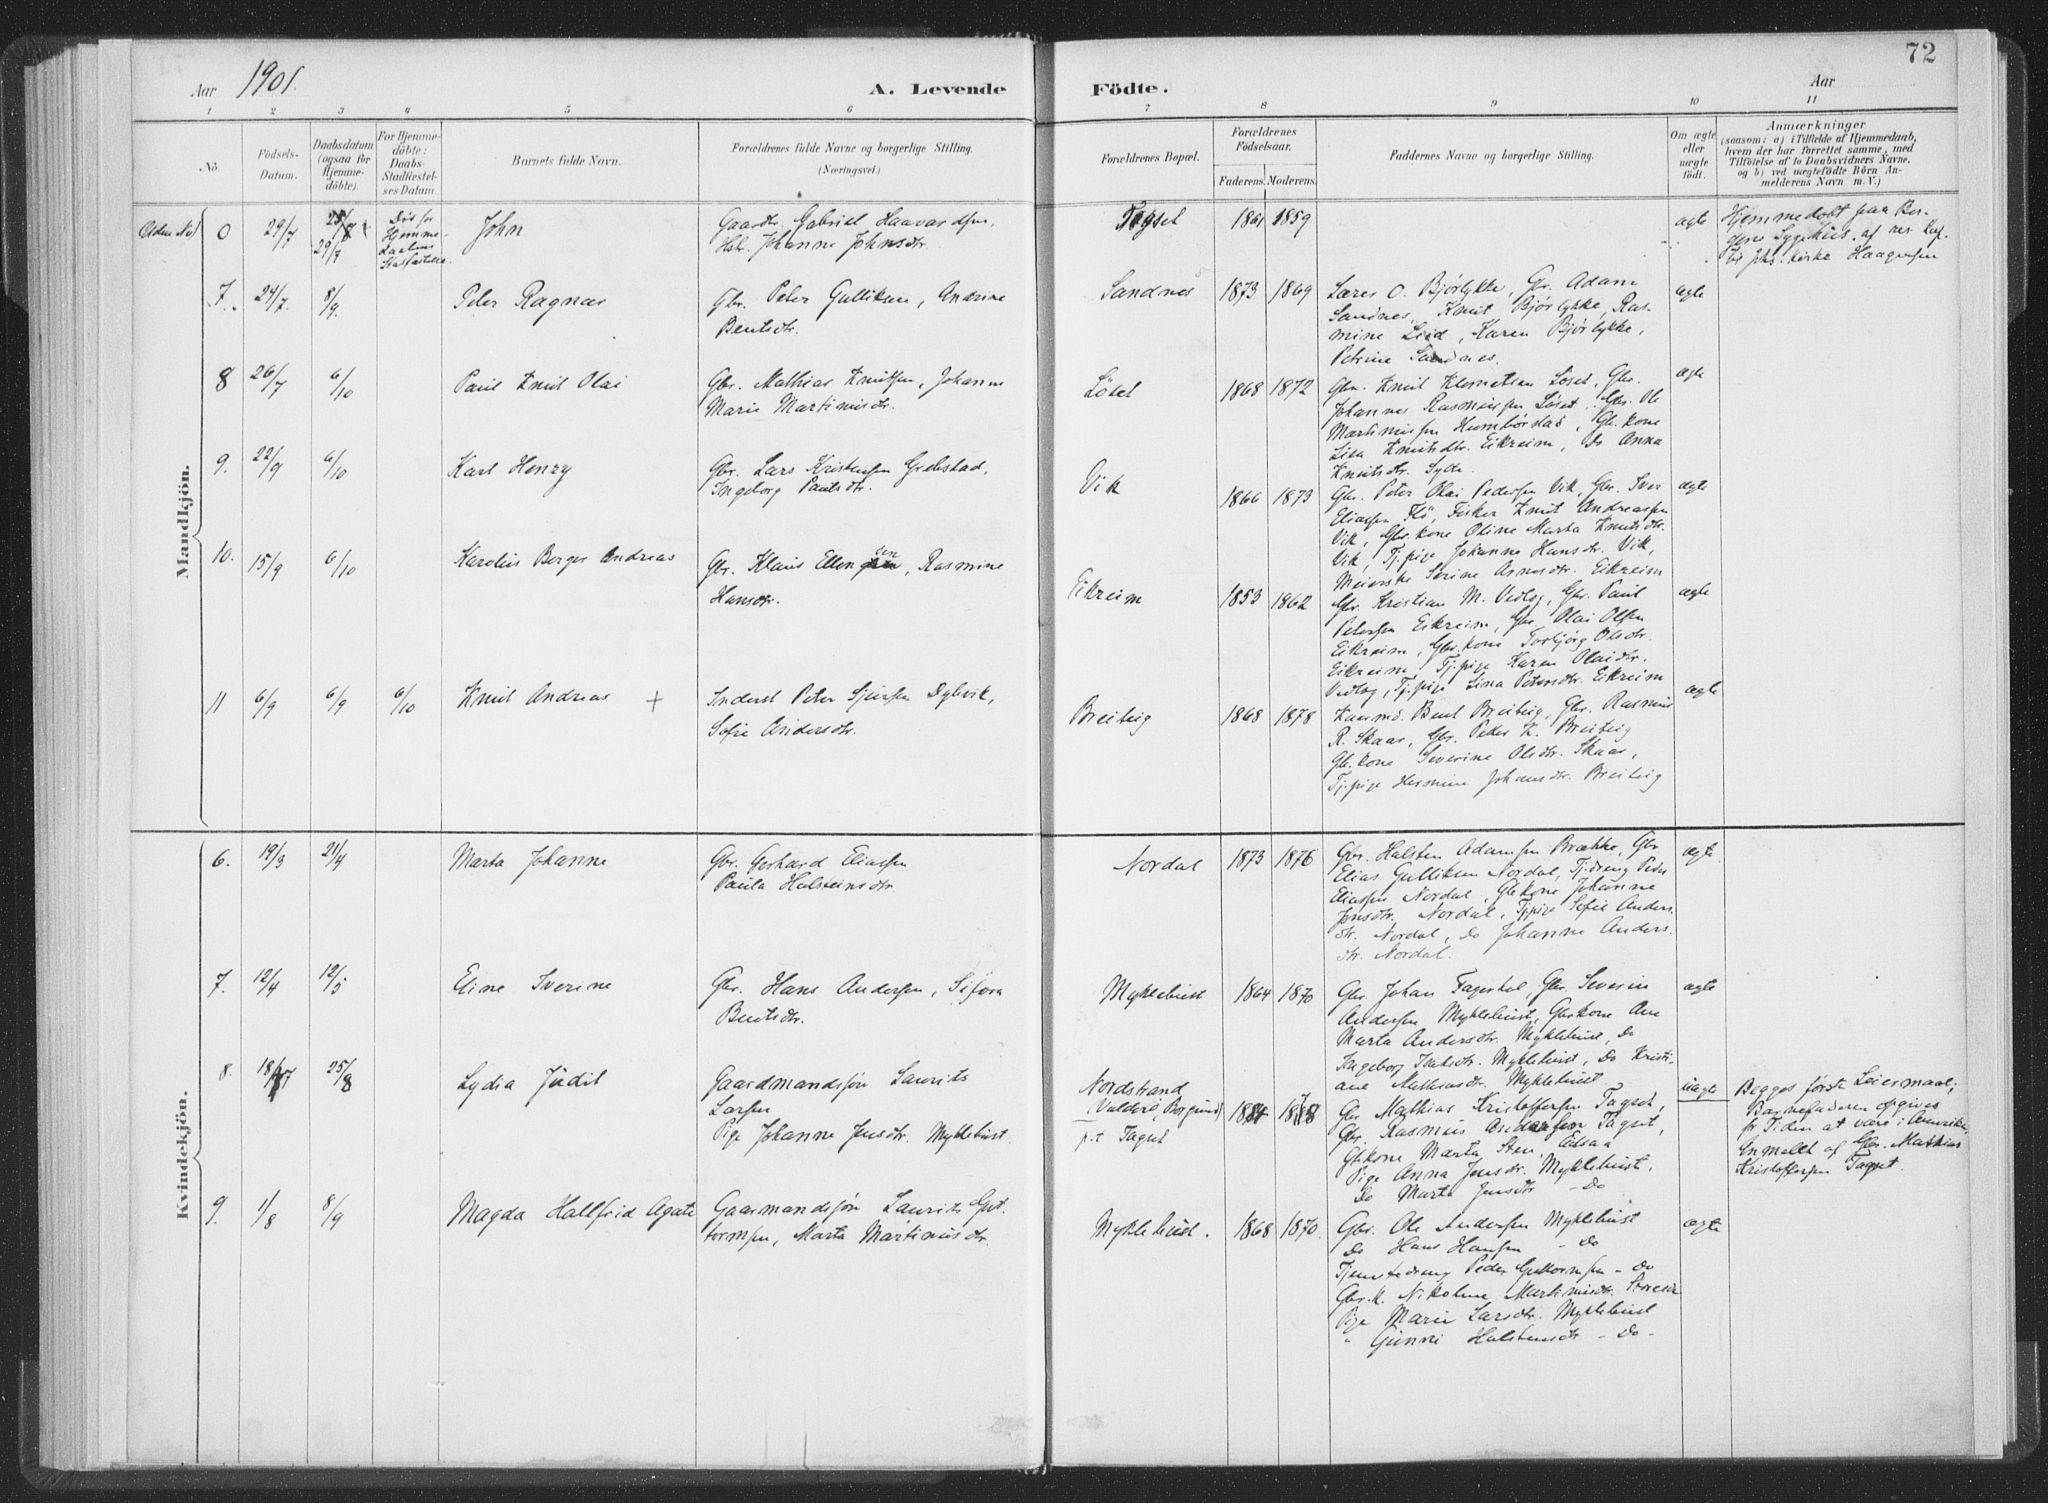 72
Aar 1901.
A. Levende
Födte.
Aar
1 2 3 4 5 6 7 8 9 10 11
No.
Födsels-
Datum.
Daabsdatum
(ogsaa for
Hjemme-
döbte).
For Hjemme-
döbte:
Daabs-
Stadfæstel-
ses Datum.
Barnets fulde Navn.
Forældrenes fulde Navne og borgerlige Stilling.
(Næringsvei.)
Forældrenes Bopæl.
Forældrenes
Födselsaar.
Faderens. Moderens.
Faddernes Navne og borgerlige Stilling.
Om ægte
eller
uægte
födt.
Anmærkninger
(saasom: a) i Tilfælde af Hjemmedaab,
hvem der har forrettet samme, med
Tilföielse af to Daabsvidners Navne.
og b) ved uægtefödte Börn An-
melderens Navn m. V.)
Mandkjön.
(Uden No) 0 29/7 29/7
Död før
Hjemme-
daabens
Stadfæstelse.
John
Gaardbr. Gabriel Haavardsen,
Hstr. Johanne Johnsdtr.
Tagset 1861 1859
ægte
Hjemmedøbt paa Ber-
gens Sygehus af res. Kap.
til Johs. kirke Haagensen
7. 24/7. 8/9.
Peter Ragnar
Gbr. Peter Gulliksen, Andrine
Bentsdtr.
Sandnes 1873 1869
Lærer O. Bjørlykke, Gbr. Adam
Sandnes, Knut Bjørlykke, Ras-
mine Leid, Karen Bjørlykke,
Petrine Sandnes.
ægte
8 26/7 6/10
Paul Knut Olai
Gbr. Mathias Knutsen, Johanne
Marie Martinusdtr.
Løset 1868 1872
Gbr. Knut Klemetsen Løset, Gbr.
Johannes Rasmussen Løset, Gbr. Ole
Martinussen Humborstad, Gbr.kone
Lisa Knutsdtr. Eikreim, Do Anna
Knutsdtr. Sylte.
ægte
9. 22/9 6/10
Karl Henry
Gbr. Lars Kristensen Grebstad,
Ingeborg Paulsdtr.
Vik 1866 1873
Gbr. Peter Olai Pedersen Vik, Gbr. Iver
Eliassen Flö, Fisker Knut Andreassen
Vik, Gbr.kone Oline Marta Knutsdtr.
Vik, Tj.pige Johanne Hansdtr. Vik,
Meierske Serine Arnesdtr. Eikreim
ægte
10. 15/9 6/10
Karolus Berger Andreas
Gbr. Klaus Ellingsen, Rasmine
Hansdtr.
Eikreim 1853 1862
Gbr. Kristian M. Vedlog, Gbr. Paul
Petersen Eikreim, Gbr. Olai Olsen
Eikreim, Gbr.kone Torbjørg Olsdtr.
Eikreim, Tj.pige Karen Olaidtr.
Vedlog, Tj.pige Lina Petersdtr. Eikreim
ægte
11 6/9 6/9 6/10
Knut Andreas +
Inderst Peter Sjursen Dybvik,
Sofie Andersdtr.
Breiteig 1868 1878
Kaarmd. Bent Breiteig, Gbr. Rasmus
R. Skaar, Gbr. Peder K. Breiteig
Gbr.kone Severine Olsdtr. Skaar,
Tj.pige Hermine Johansdtr. Breiteig
ægte
Kvindekjön.
6. 19/3 21/4
Marta Johanne
Gbr. Gerhard Eliassen
Paula Halsteinsdtr
Nordal 1873 1876
Gbr. Halsten Adamsen Brække, Gbr
Elias Gulliksen Nordal, Tj.dreng Peder
Eliassen Nordal, Gbr.kone Johanne
Jonsdtr. Nordal, Tj.pige Sofie Anders-
dtr. Nordal, Do Johanne Anders-
dtr. Nordal.
ægte
7. 12/4 12/5
Eline Iverine
Gbr. Hans Andersen, Sefora
Bentsdtr.
Myklebust 1864 1870
Gbr. Johan Fagerhol, Gbr. Severin
Andersen Myklebust, Gbr.kone Ane
Marta Andersdtr. Myklebust, Do
Ingeborg Isaksdtr. Myklebust, Do Kristi-
ane Mathiasdtr. Myklebust
ægte
8. 18/7 25/8
Lydia Judit
Gaardmandssøn Laurits
Larsen
Pige Johanne Jensdtr. Myklebust.
Nordstrand
(Valderö, Borgund)
p.t Tagset
1878
Gbr Mathias Kristoffersen Tagset,
Gbr. Rasmus Andersen Tagset,
Gbr.kone Marta Sten. Aasaa
Pige Anna Jensdtr. Myklebust.
Do Marta Jensdtr - Do
uægte
Begges første Leiermaal;
Barnefaderen opgives
for Tiden at være i Amerika.
Enmeldt af Gbr. Mathias
Kristoffersen Tagset.
9. 1/8 8/9
Magda Hallfrid Agate
Gaarmandssøn Laurits Gut-
tormsen, Marta Martinusdtr.
Myklebust. 1868 1870.
Gbr. Ole Andersen Myklebust
Do Hans Hansen - Do
Tjenestedreng Peder Guttormsen - Do
Gbr.k. Nikoline Martinusdtr. Storeide
Pige Marie Larsdtr. Myklebust
" Gunni Halstensdtr - Do -
ægte